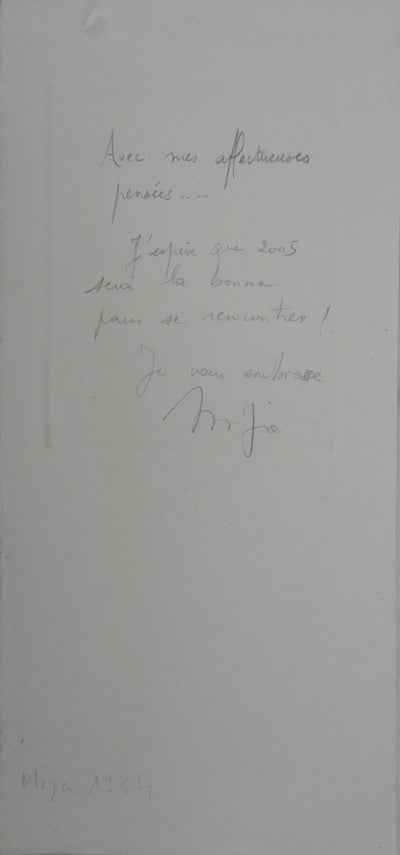 Avec mes affectueuses
pensées....
J'espère que 2005
sera la bonne
pour se rencontrer !
Je vous embrasse